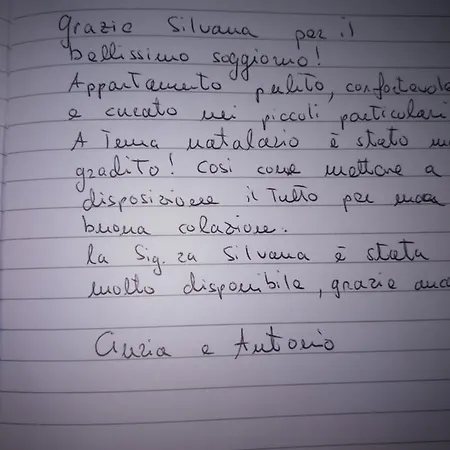 Grazie Silvana per il
bellissimo soggiorno!
Appartamento pulito, confortevole
e curato nei piccoli particolari
A Tema natalazio è stato
gradito! Così come mettere a
disposizione il Tutto per una
buona colazione.
la Sig.ra Silvana è stata
molto disponibile, grazie
e Antonio